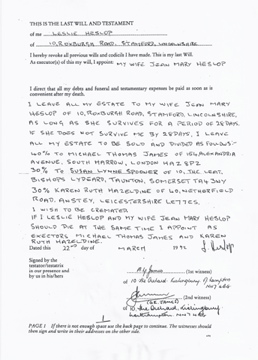 THIS IS THE LAST WILL AND TESTAMENT
of me LESLIE HESLOP
of 10, ROXBURGH ROAD, STAMFORD, LINCOLNSHIRE
I hereby revoke all previous wills and codicils I have made. This is my last Will.
As executor(s) of this my will, I appoint MY WIFE JEAN MARY HESLOP
I direct that all my debts and funeral and testamentary expenses be paid as soon as is
convenient after my death.
I LEAVE ALL MY ESTATE TO MY WIFE JEAN MARY
HESLOP OF 10, ROXBURGH ROAD, STAMFORD, LINCOLNSHIRE,
AS LONG AS SHE SURVIVES FOR A PERIOD OF 28 DAYS
IF SHE DOES NOT SURVIVE ME BY 28 DAYS, I LEAVE
ALL MY ESTATE TO BE SOLD AND DIVIDED AS FOLLOWS:-
40% TO MICHAEL THOMAS JAMES OF ALEXANDRIA
AVENUE, SOUTH HARROW, LONDON HA2 8PZ
30% TO SUSAN LYNNE SPOONER OF 10, THE LEAT,
BISHOPS LYDEARD, TAUNTON, SOMERSET
30% KAREN RUTH HAZELDINE OF 60, NETHERFIELD
ROAD, ANSTEY, LEICESTERSHIRE
I WISH TO BE CREMATED
IF I LESLIE HESLOP AND MY WIFE JEAN MARY HESLOP
SHOULD DIE AT THE SAME TIME I APPOINT AS
EXECUTORS MICHAEL THOMAS JAMES AND KAREN
RUTH HAZELDINE.
Dated this 22nd day of MARCH
Signed by the
testator/testatrix
in our presence and
by us in his/hers
(1st witness)
of 10
(2nd witness)
of 10
PAGE 1 If there is not enough space use the back page to continue. The witnesses should
then sign and write in their addresses on that side.